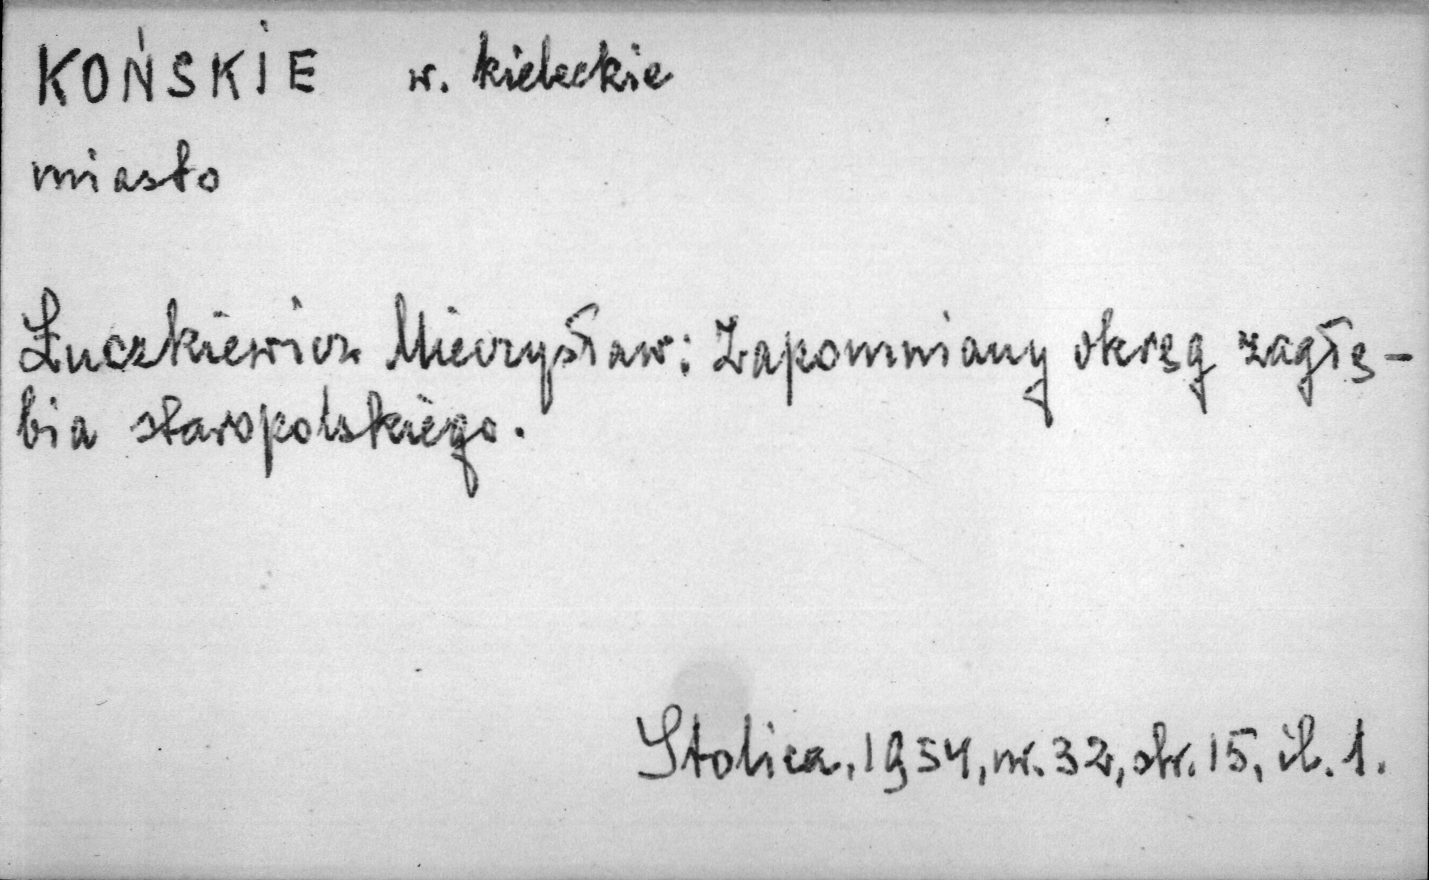 KOŃSKIE w. kieleckie
miasto
Łuczkiewicz Mieczysław: Zapomniany okręg zagłę-
bia staropolskiego.
Stolica, 1954, nr. 32, str. 15, il. 1.